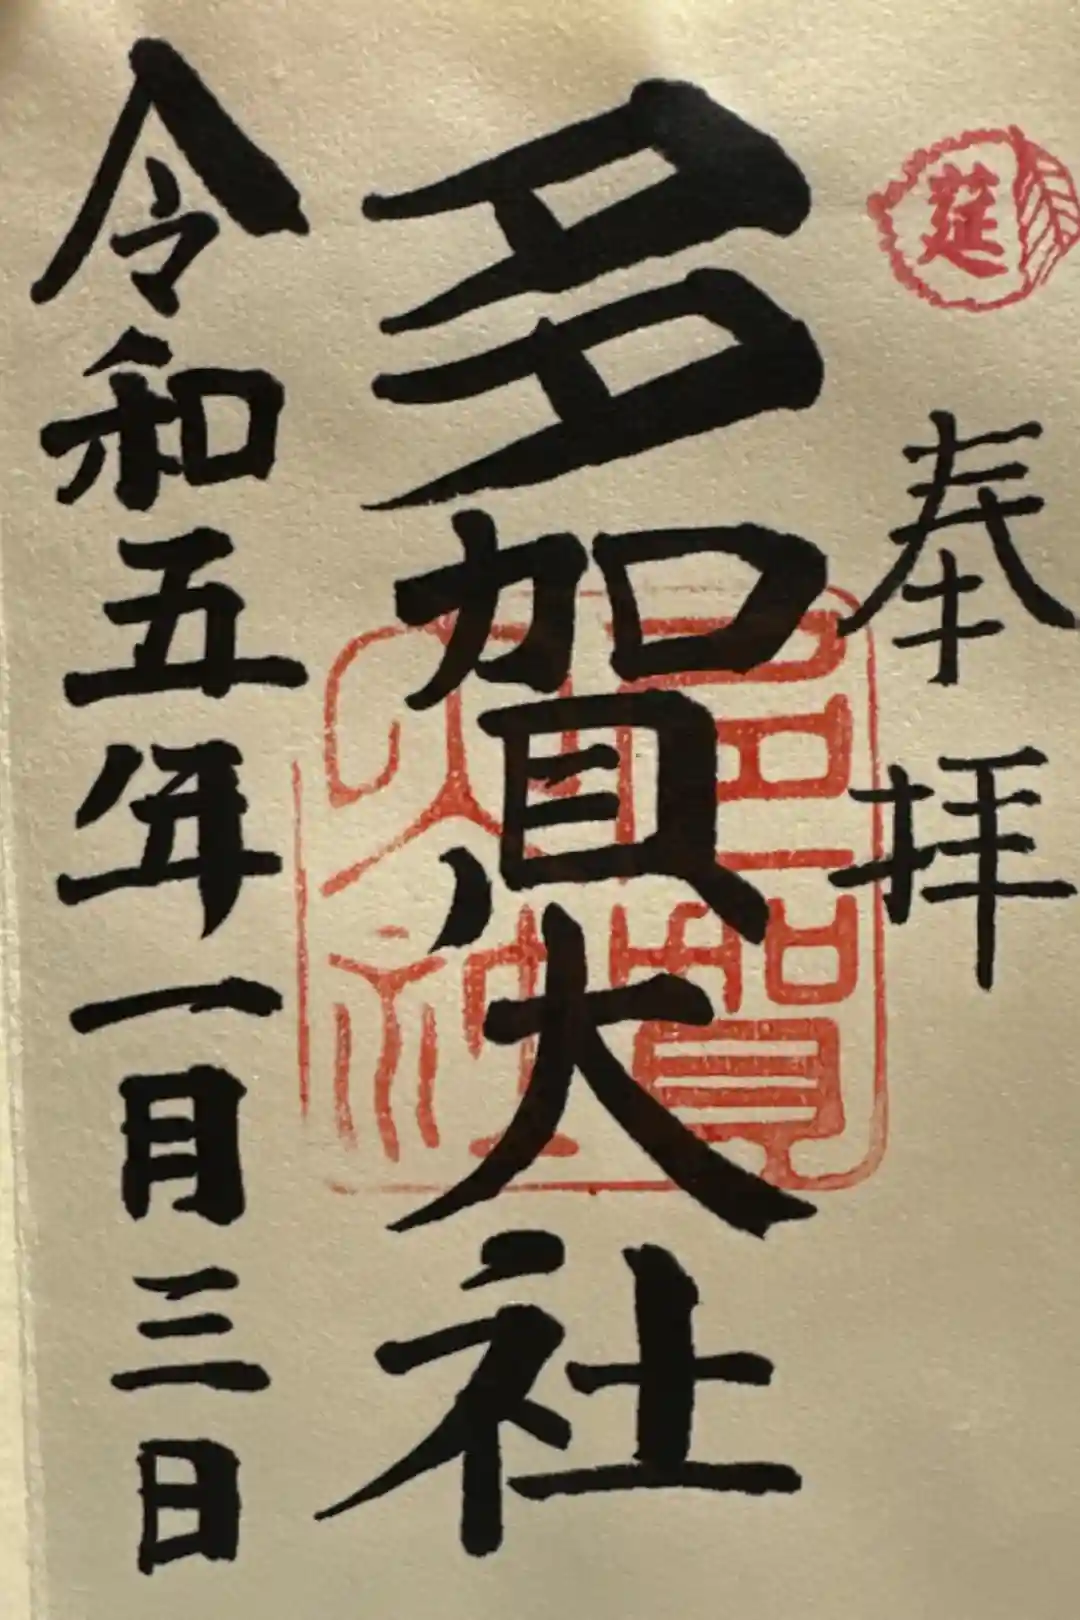 莚
奉拝
多賀大社
多賀大社
令和五年一月三日